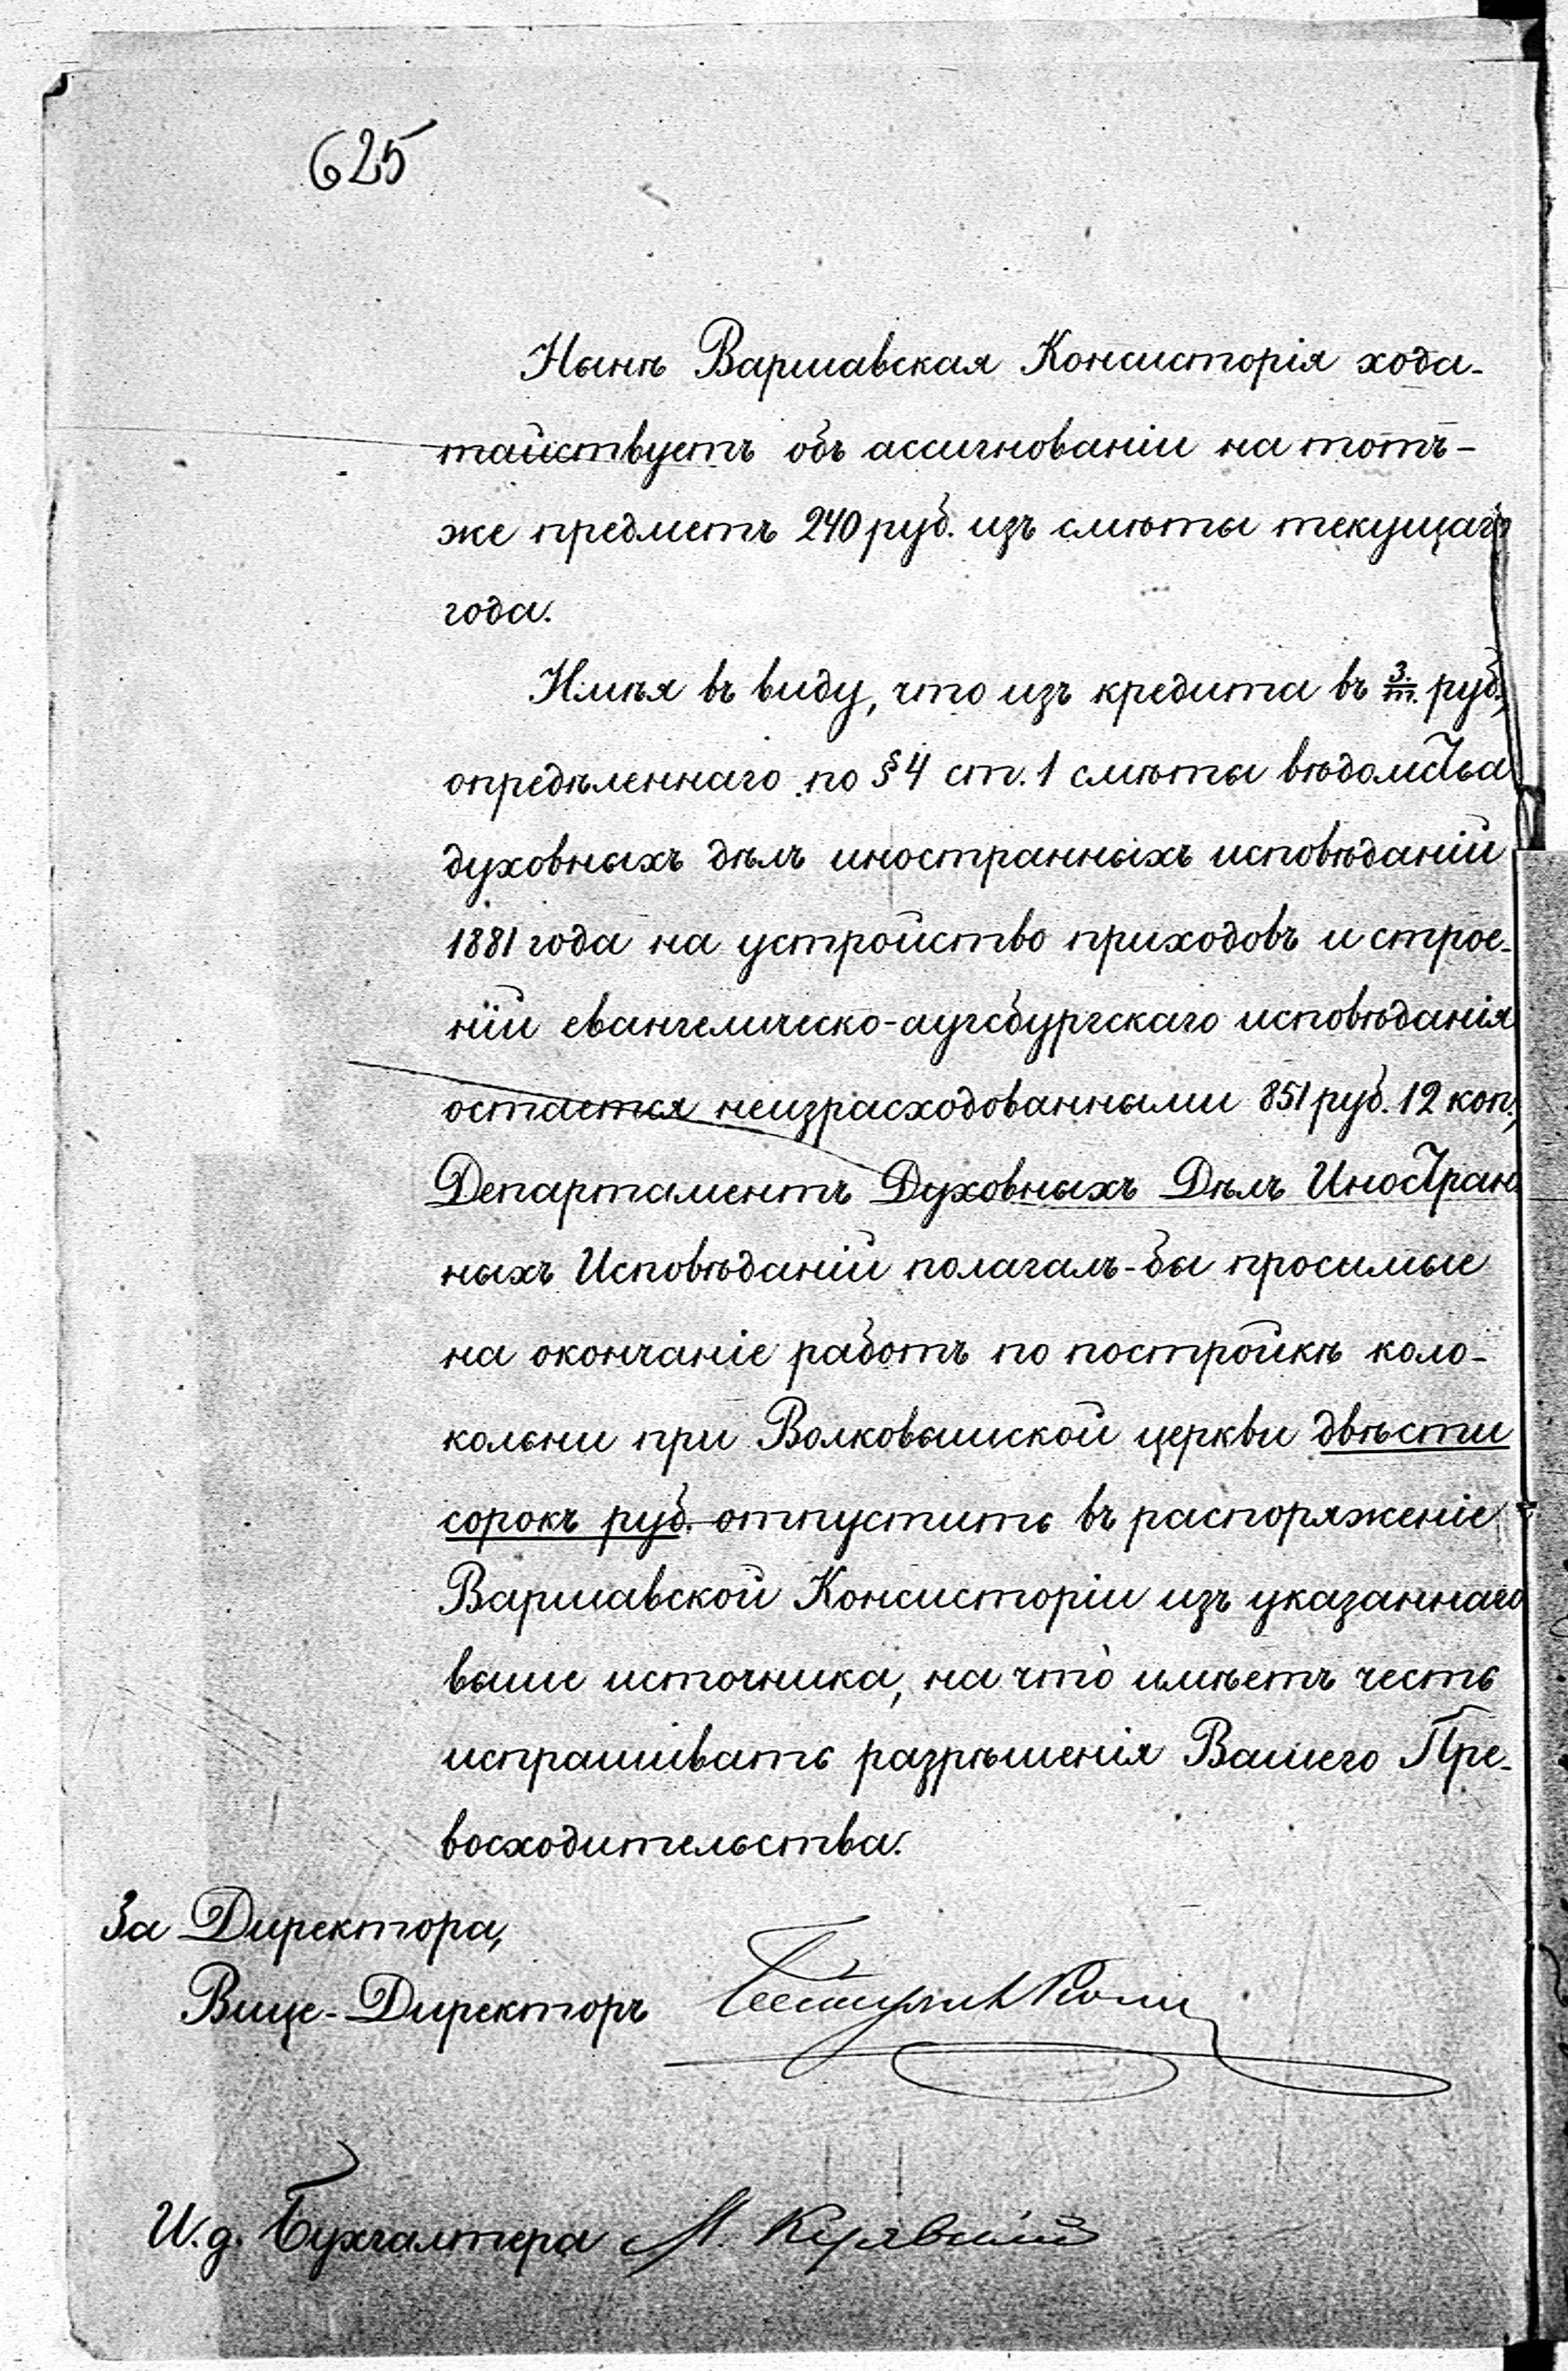 625
Нынѣ Варшавская Консисторія хода-
тайствуетъ объ ассигнованіи на тотъ-
же предметъ 240 руб. изъ смѣты текущаго
года.
Имѣя въ виду, что изъ кредита въ 3/т. руб.,
опредѣленнаго по §4 ст. 1 смѣты вѣдомства
духовныхъ дѣлъ иностранныхъ исповѣданій
1881 года на устройство приходовъ и строе-
ній евангелическо-аугсбургскаго исповѣданія
остается неизрасходованными 851 руб. 12 коп.,
Департаментъ Духовныхъ Дѣлъ Иностран-
ныхъ Исповѣданій полагалъ-бы просимые
на окончаніе работъ по постройкѣ коло-
кольни при Волковышской церкви двѣсти
сорокъ руб. отпустить въ распоряженіе
Варшавской Консисторіи изъ указаннаго
выше источника, на что̀ имѣетъ честь
испрашивать разрѣшенія Вашего Пре-
восходительства.
За Директора,
Вице-Директоръ
И. д. Бухгалтера М.